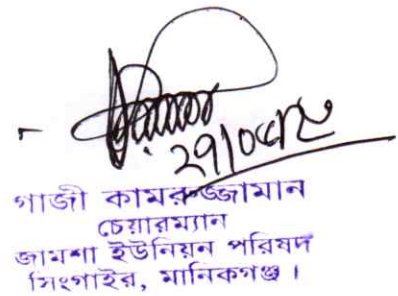 গাজী কামরুজ্জামান
চেয়ারম্যান
জামশা ইউনিয়ন পরিষদ
সিংগাইর, মানিকগঞ্জ ।